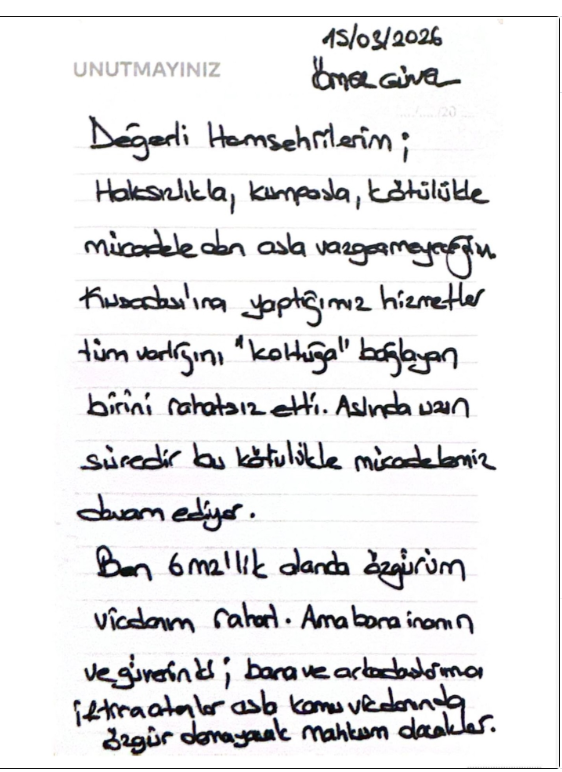 15/03/2026
UNUTMAYINIZ
Ömer GÜNEL
Değerli Hemşehrilerim;
Haksızlıkla, kumpasla, kötülükle
mücadeleden asla vazgeçmeyeceğim.
Kuşadası'na yaptığımız hizmetler
tüm varlığını "koltuğa" bağlayan
birini rahatsız etti. Aslında uzun
süredir bu kötülükle mücadelemiz
devam ediyor.
Ben 6 m2'lik alanda özgürüm
vicdanım rahat. Ama bana inanın
ve güvenin ki; bana ve arkadaşlarıma
iftira atanlar asla kamu vicdanında
özgür olamayarak mahkum olacaklar.